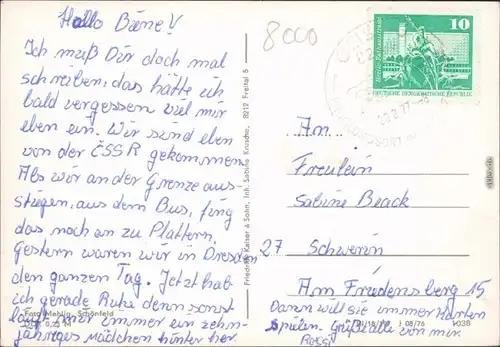 8000
10
DEUTSCHE DEMOKRATISCHE REPUBLIK
Hallo Biene!
Ich muß Dir doch mal
schreiben, das hätte ich
bald vergessen viel mir
eben ein. Wir sind eben
von der ČSSR gekommen
Als wir an der Grenze aus-
stiegen, aus dem Bus, fing
das noch an zu Plattern.
Gestern waren wir in Dresden
den ganzen Tag. Jetzt hab
ich gerade Ruhe denn sonst
läuft mir immer ein zehn-
jähriges Mädchen hinter her.
Foto Mehlig, Schönfeld
Friedrich Kaiser & Sohn, Inh. Sabine Krusche, 8212 Freital 5
An
Freulein
Sabine Beack
27 Schwerin
Am Friedensberg 15
Dann will sie immer Karten
spielen. Grüße alle von mir
08/76